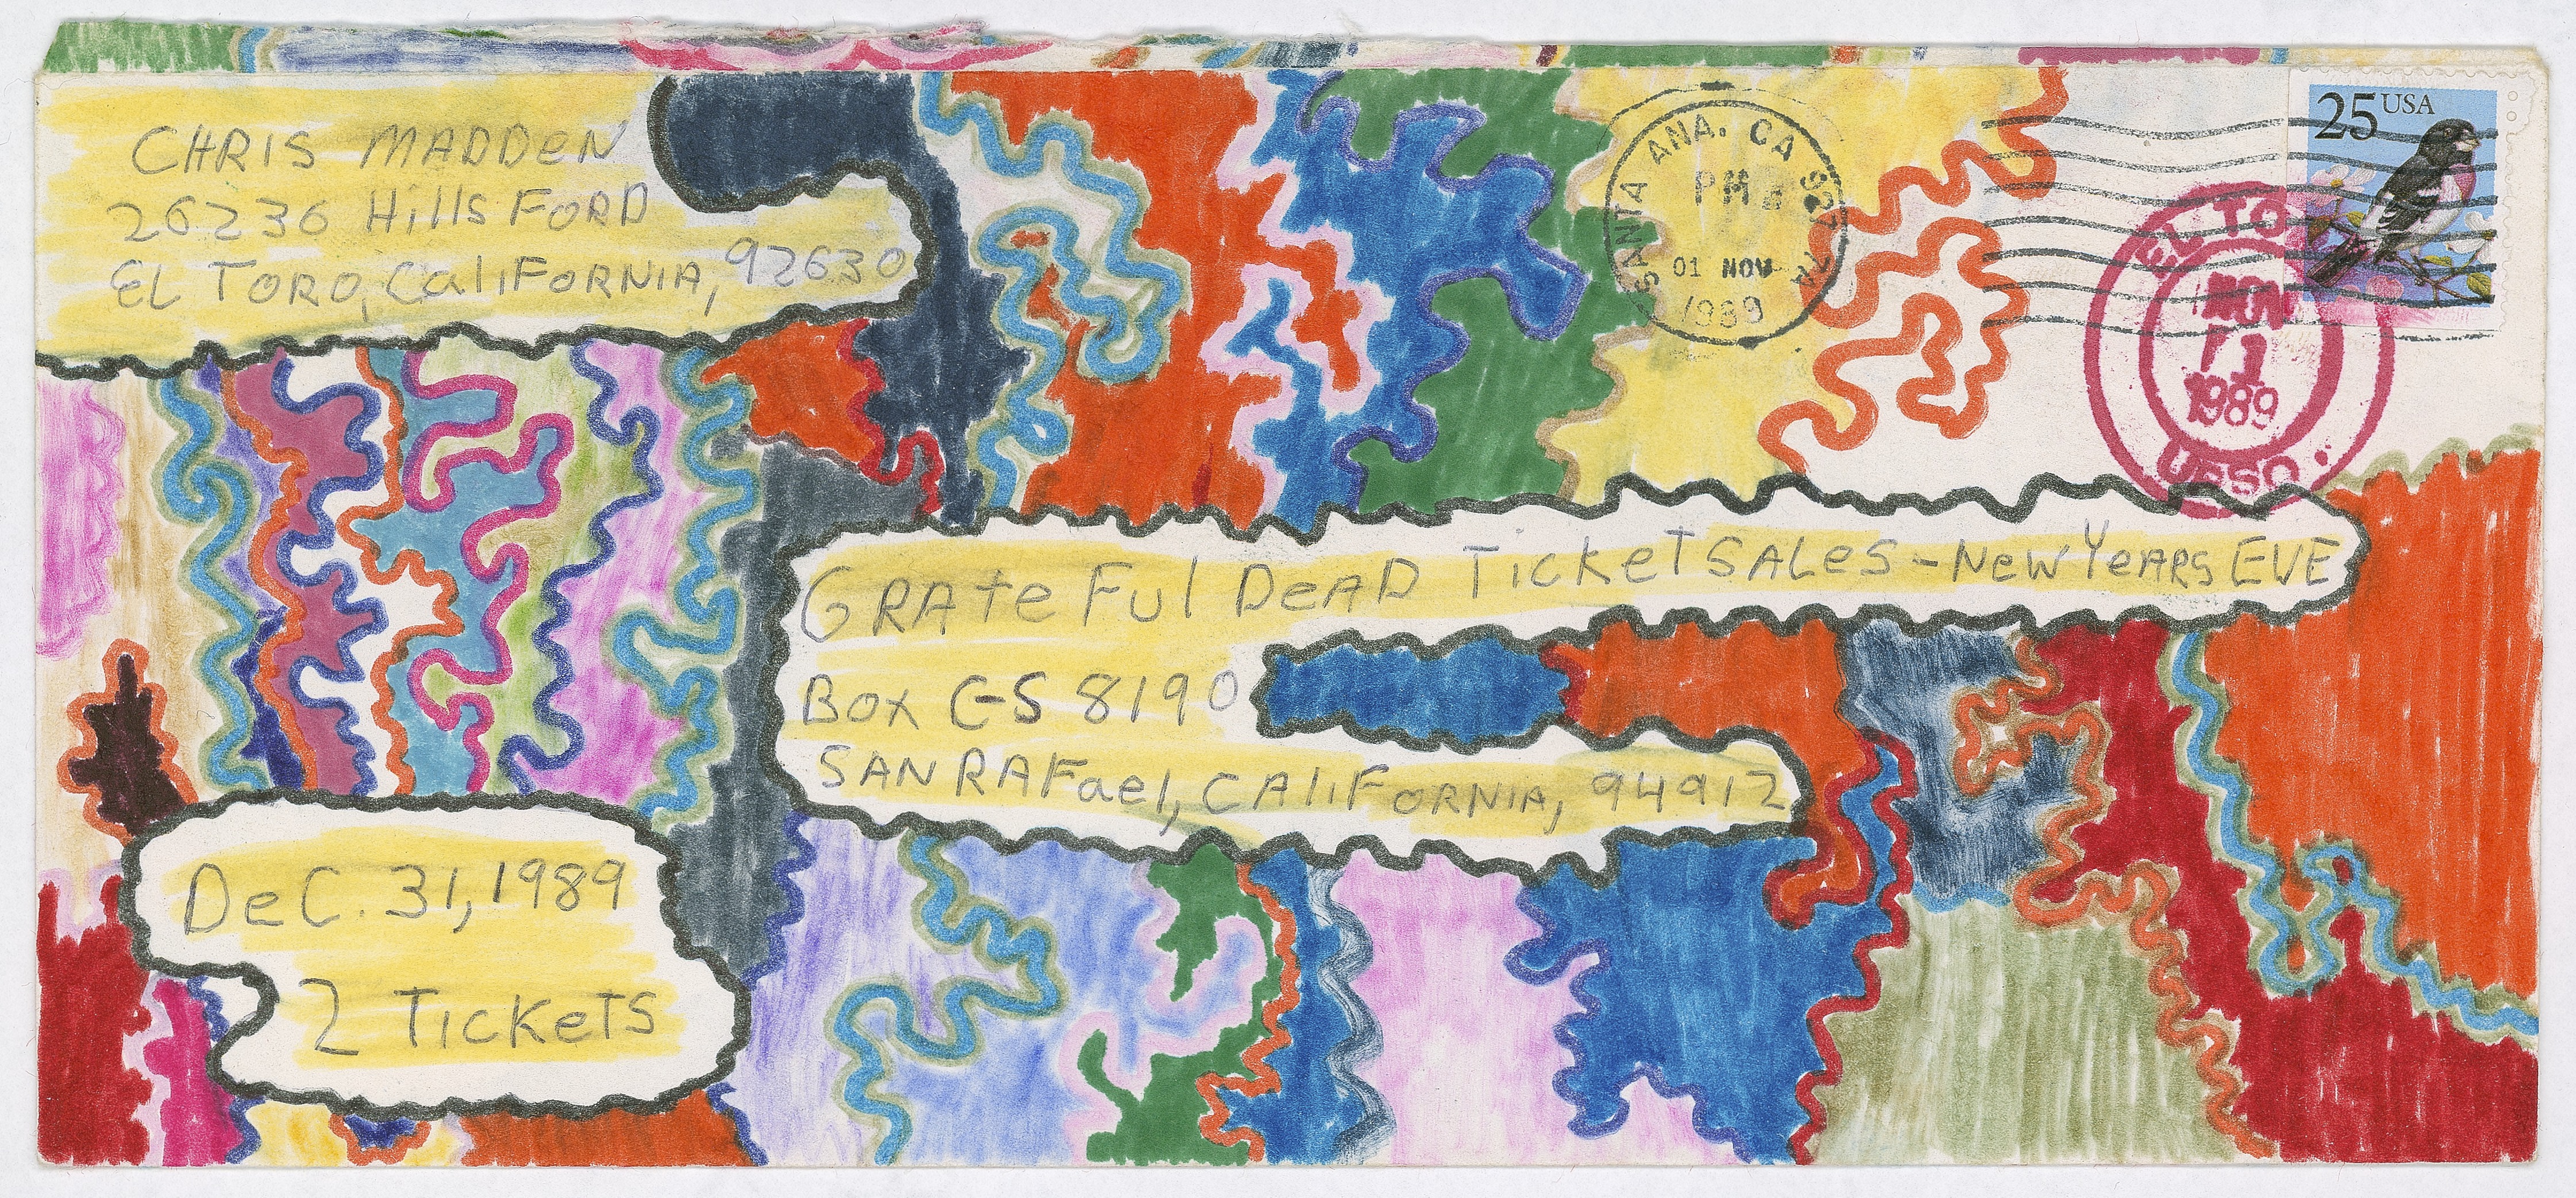 CHRIS MADDEN
26236 Hills FORD
EL TORO, CaliFORNIA, 92630
SANTA ANA. CA
PM
01 NOV
1989
25 USA
EL TO
NOV
1
1989
USSO.
GRAteFul DeAD TickeT SALes - New YeARS EVE
Box C-S 8190
SAN RAFael, CAliFORNIA, 94912
DeC. 31, 1989
2 TickeTS